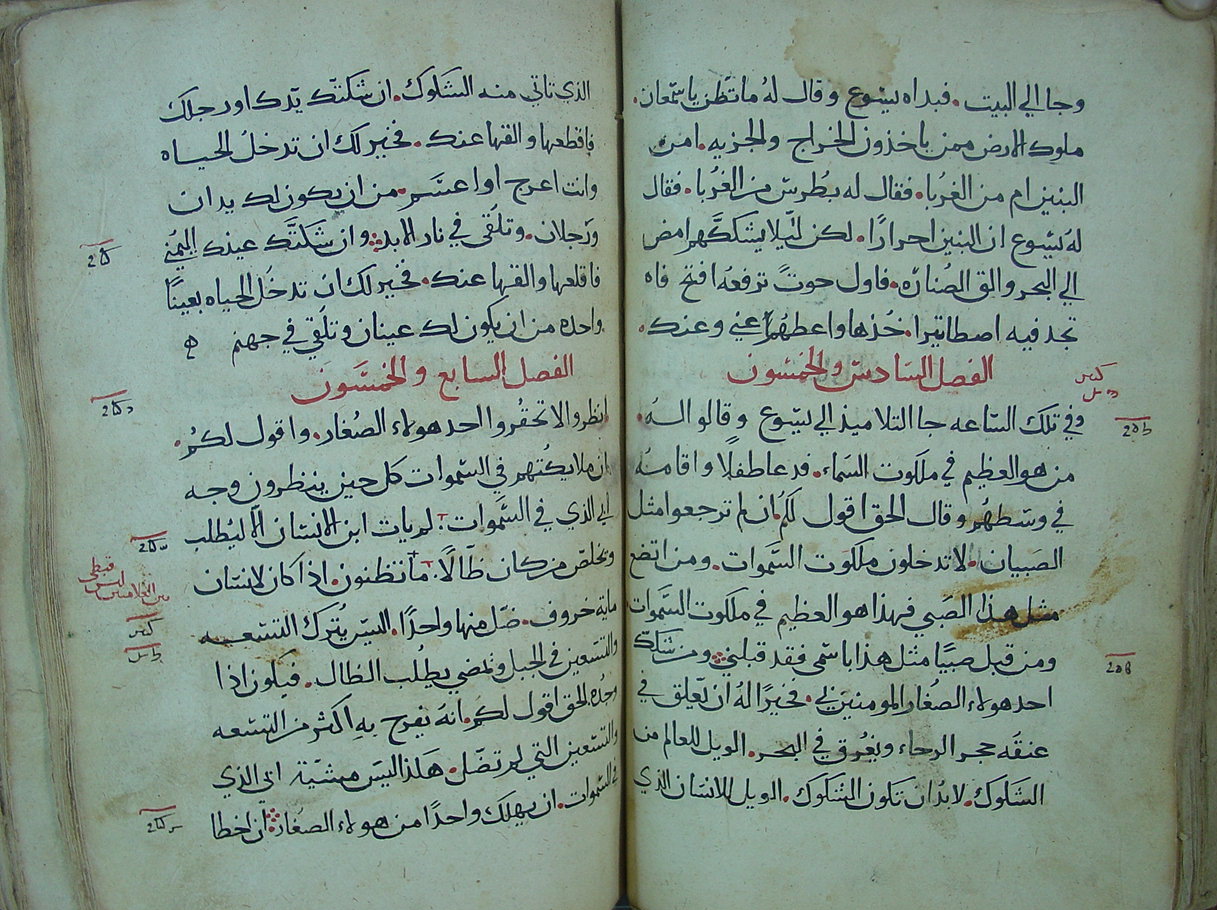 وجا الي البيت. فبداه يسوع وقال لهُ ما تظن يا سمعان.
ملوك الارض ممن ياخذون الخراج والجزيه. امن
البنين ام من الغُربا. فقال له بُطرس من الغُربا. فقال
لهُ يسوع ان البنين احرارًا. لكن لئيلا يشكّكهم امض
الي البحر والق الصُناره. فاول حوت ترفعهُ افتح فاه
تجد فيه اصطاتيرا. خُذها واعطهُم عني وعنك.
الفصل السّادس والخمسون
وفي تلك السّاعه جا التلاميذ الي يسوع وقالو الهُ.
من هو العظيم في ملكوت السّماء. فدعا طفلًا واقامهُ
في وسطهُم وقال الحق اقول لكم ان لم ترجعوا مثل
الصَبيان. لا تدخلون ملكوت السّموات. ومن اتضع
مثل هذا الصَبي فهذا هو العظيم في ملكوت السّموات
ومن قبل صبيًا مثل هذا باسمي فقد قبلني ومن شكك
احد هولاء الصغار المومنين بي. فخيرًا لهُ ان تعلق في
عنقه حجر الرحاء ويغرق في البحر. الويل للعالم من
الشكوك. لابدّ ان تكون الشكوك. الويل للانسان الذي
الذي تاتي منه الشكوك. ان شكتك يدك او رجلك
فاقطعها والقها عنك. فخير لك ان تدخلُ الحياه
وانت اعرج او اعسم من ان يكون لك يدان
ورجلان. وتلقى في نار الابد وان شكتّك عينك اليمني
فاقلعها والقها عنك. فخير لك ان تدخُل الحياه بعينًا
واحده من ان يكون لك عينان وتلقي في جهنم
الفصل السابع والخمسون
انظروا لا تحقُروا احد هولاء الصُغار. واقول لكم.
ان ملايكتهم في السّموات كل حين ينظرون وجه
ابي الذي في السّموات. لم يات ابن الانسان الّا ليُطلب
ويخلّص من كان ظالًا. ما تظنون. اذا كان لانسان
مايه خروف. ضل منها واحدًا. اليس يُترك التسعه
والتسعين في الجبل ويمضي يطلُب الظال. فيكون اذا
وجده الحق اقول لكم. انهُ يفرح بهِ اكثر من التسعه
والتسعين التي لم تضّل. هكذا ليس مشيّة ابي الذي
في السّموات. ان يهلك واحدًا من هولاء الصغار ان اخطا